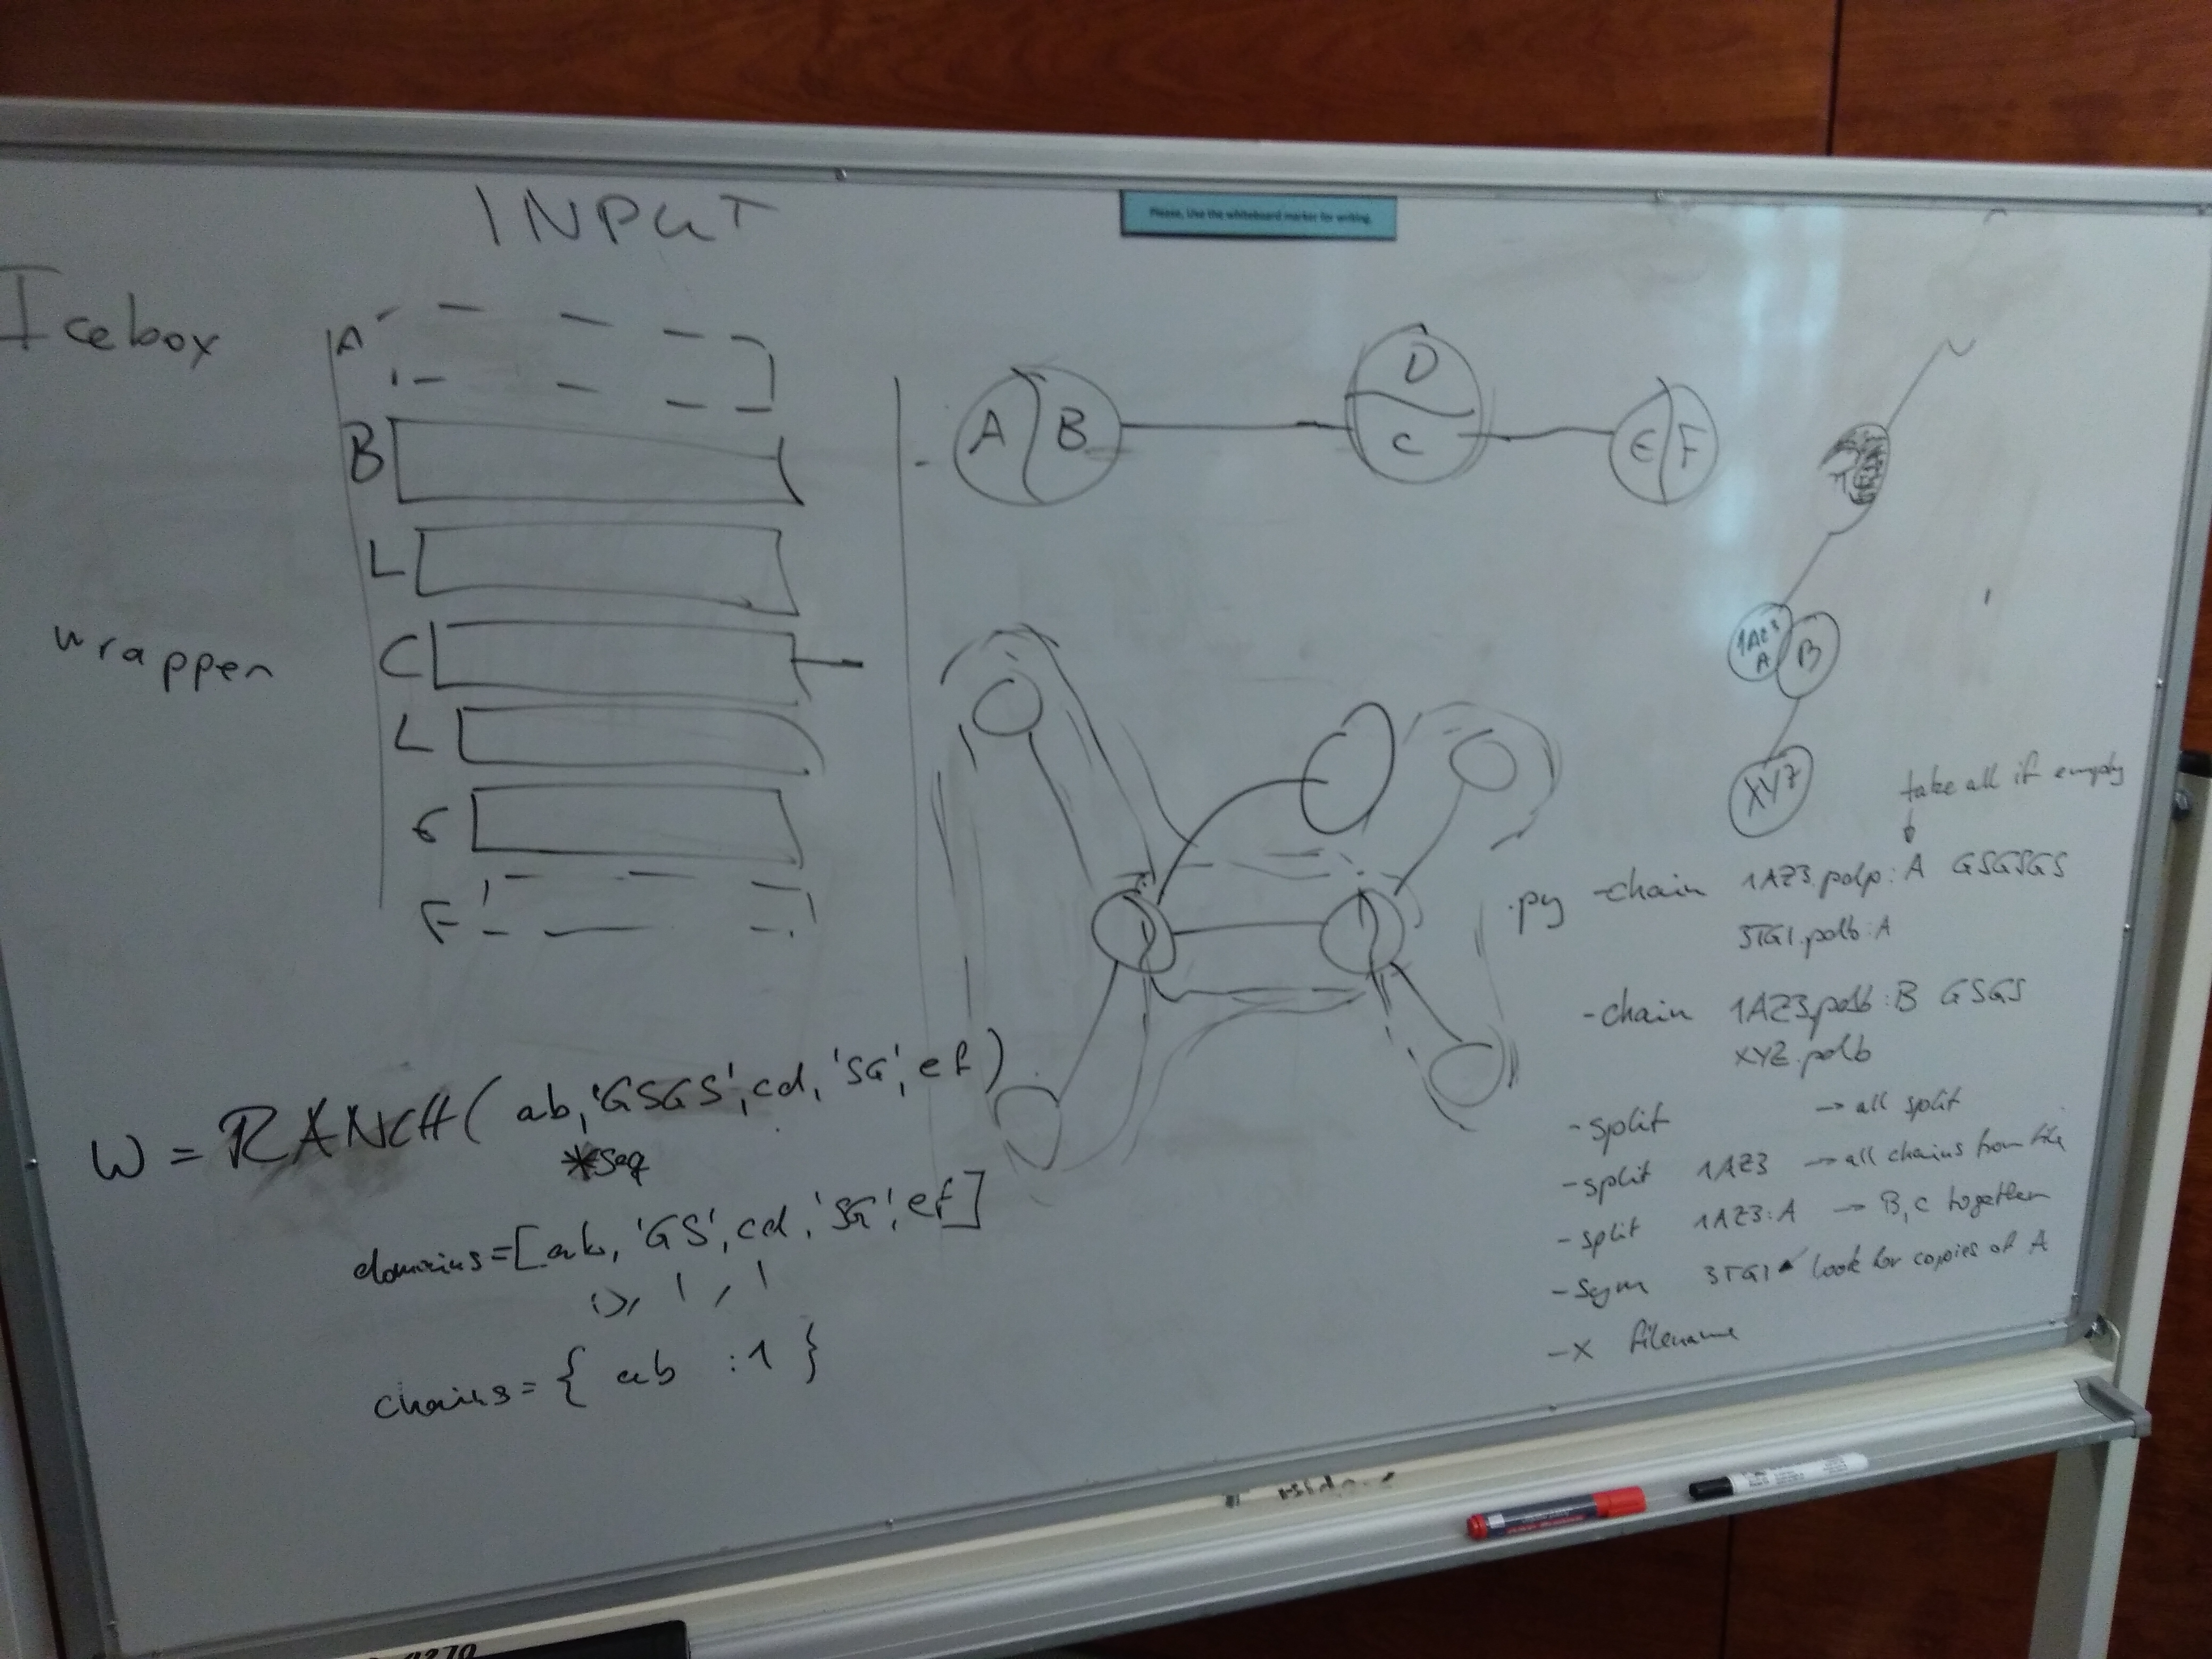 INPUT
Please, Use the whiteboard marker for writing.
Icebox
A
B
L
C
L
E
F
wrapper
A B
D
C
E F
1AZ3
A
B
XYZ
take all if empty
.py -chain 1AZ3.pdp:A GSGSGS
3TGI.pdb:A
-chain 1AZ3.pdb:B GSGS
XYZ.pdb
-split → all split
-split 1AZ3 → all chains from file
-split 1AZ3:A → B,C together
-sym 3TGI look for copies of A
-x filename
W = RANCH( ab, 'GSGS', cd, 'SG', ef )
*seq
domains = [ab, 'GS', cd, 'SG', ef]
chains = { ab :1 }